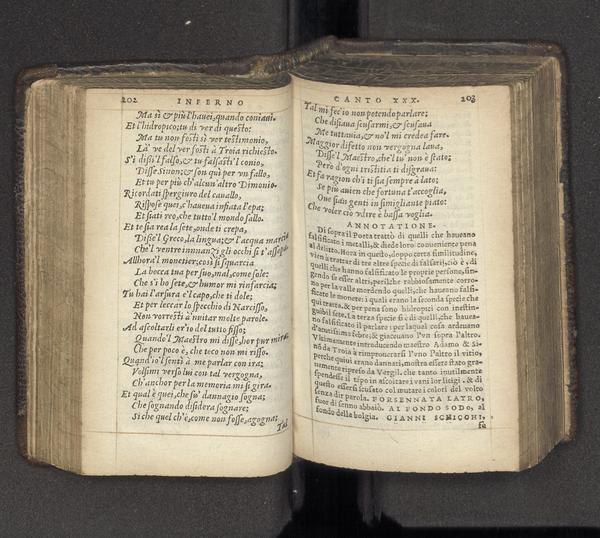 202 INFERNO
Ma sì & più l'hauei, quando coniaui.
Et l'hidropico; tu di ver di questo:
Ma tu non fosti sì ver testimonio,
Là 've del ver fosti à Troia richiesto.
S'i dissi'l falso, & tu falsasti'l conio,
Disse Sinon; & son quì per vn fallo,
Et tu per più ch'alcun'altro Dimonio.
Ricordati spergiuro del cauallo,
Rispose quei, c'haueua infiata l'epa;
Et siati reo, che tutto'l mondo sallo.
Et te sia rea la sete, onde ti crepa,
Disse'l Greco, la lingua; & l'acqua marcia
Che'l ventre innanzi gli occhi sì t'assepa.
Allhora'l monetier; così si squarcia
La bocca tua per suo mal, come sole:
Che s'i ho sete, & humor mi rinfarcia;
Tu hai l'arsura e'l capo, che ti dole;
Et per leccar lo specchio di Narcisso,
Non vorresti à'nuitar molte parole.
Ad ascoltarli er'io del tutto fisso;
Quando'l Maestro mi disse, hor pur mira:
Che per poco è, che teco non mi risso.
Quand'io'l senti à me parlar con ira;
Volsimi verso lui con tal vergogna,
Ch'anchor per la memoria mi si gira.
Et qual è quei, che su' dannagio sogna;
Che sognando disidera sognare;
Si che quel ch'è, come non fosse, agogna:
Tal
CANTO XXX. 203
Tal mi fec'io non potendo parlare;
Che disiaua scusarmi, & scusaua
Me tuttauia, & no'l mi credea fare.
Maggior difetto non vergogna laua,
Disse'l Maestro, che'l tu' non è stato;
Però d'ogni tristitia ti disgraua:
Et fa ragion ch'i ti sia sempre à lato;
Se più auien che fortuna t'accoglia,
Oue sian genti in simigliante piato:
Che voler ciò vdire è bassa voglia.
ANNOTATIONE.
Di sopra il Poeta trattò di quelli che haueano
falsificato i metalli, & diede loro conueniente pena
al delitto. Hora in questo, doppo certa similitudine,
vien à trattar di tre altre specie di falsarij, ciò è, di
quelli che hanno falsificato le proprie persone, fin-
gendo se esser altri, perilche rabbiosamente corro-
no per la valle mordendo quelli, che haueano falsi-
ficate le monete: i quali erano la seconda specie che
qui tratta, & per pena sono hidropici con inestin-
guibil sete. La terza specie si è di quelli, che hauea-
no falsificato il parlare: per laqual cosa ardeuano
d'acutissima febre; & giaceuano l'vn sopra l'altro.
Vltimamente introducendo maestro Adamo & Si-
nò da Troia à rimprouerarsi l'vno l'altro il vitio,
perche quiui erano dannati, mostra essere stato gra-
uemente ripreso da Vergil. che tanto inutilmente
spendesse il tipo in ascoltare i vani lor litigi, & di
questo essersi scusato col mutare i colori del volto
senza dir parola. FORSENNATA LATRO,
fuor di senno abbaiò. AL FONDO SODO, al
fondo della bolgia. GIANNI SCHICCHI,
fù